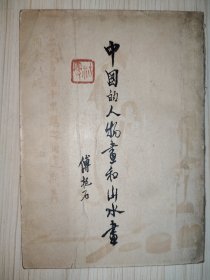 中国的人物畫和山水畫
傅抱石